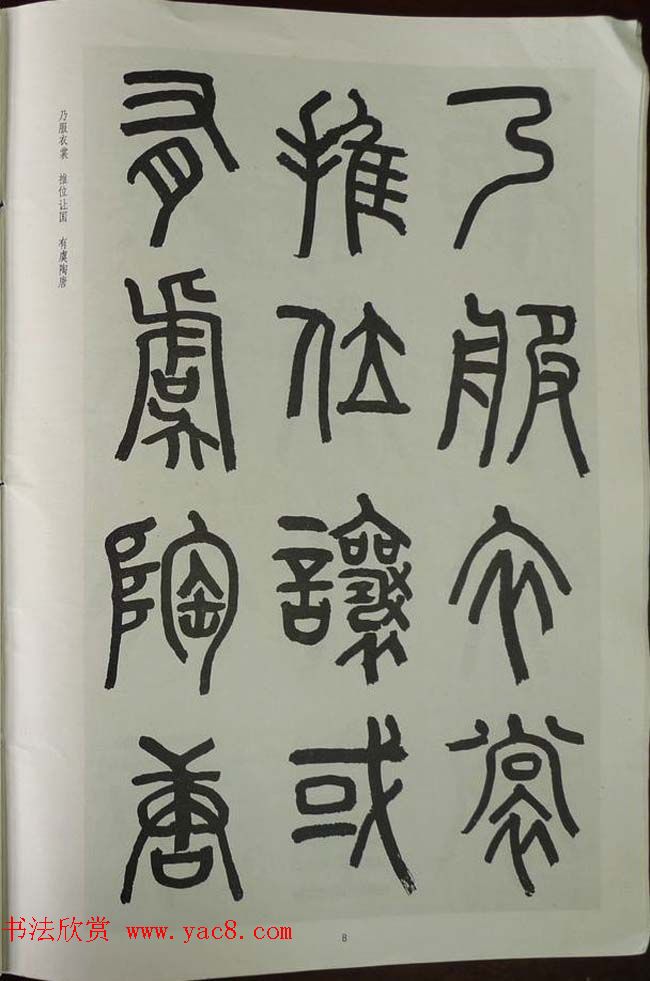 乃服衣裳
推位讓或
有虞陶唐
乃服衣裳 推位让国 有虞陶唐
书法欣赏 www.yac8.com
8